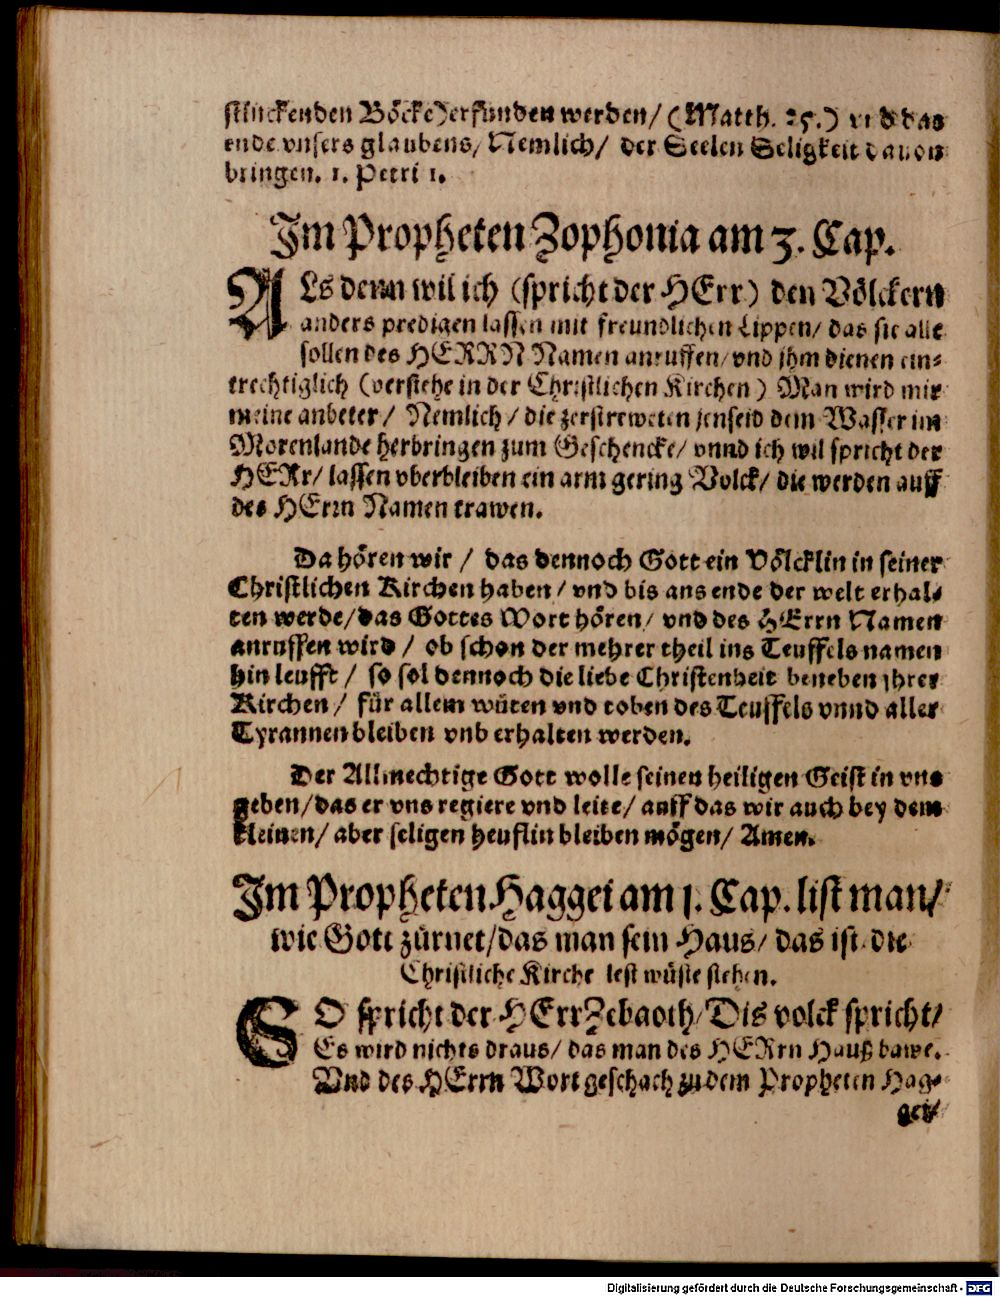 stinckenden Böcke) erfunden werden/ (Matth. 25.) vnd das
ende vnsers glaubens/ Nemlich/ der Seelen Seligkeit dauon
bringen. 1. Petri 1.
Im Propheten Zophonia am 3. Cap.
ALs denn wil ich (spricht der HErr) den Völckern
anders predigen lassen mit freundlichen Lippen/ das sie alle
sollen des HERRN Namen anruffen/ vnd jhm dienen ein-
trechtiglich (verstehe in der Christlichen Kirchen) Man wird mir
meine anbeter/ Nemlich/ die zerstreweten jenseid dem Wasser im
Morenlande herbringen zum Geschencke/ vnnd ich wil spricht der
HERr/ lassen vberbleiben ein arm gering Volck/ die werden auff
des HErrn Namen trawen.
Da hören wir/ das dennoch Gott ein Völcklin in seiner
Christlichen Kirchen haben/ vnd bis ans ende der welt erhal-
ten werde/ das Gottes Wort hören/ vnd des HErrn Namen
anruffen wird/ ob schon der mehrer theil ins Teuffels namen
hin leufft/ so sol dennoch die liebe Christenheit beneben jhrer
Kirchen/ für allem wüten vnd toben des Teuffels vnnd aller
Tyrannen bleiben vnb erhalten werden.
Der Allmechtige Gott wolle seinen heiligen Geist in vns
geben/ das er vns regiere vnd leite/ auff das wir auch bey dem
kleinen/ aber seligen heuflin bleiben mögen/ Amen.
Im Propheten Haggei am 1. Cap. list man/
wie Gott zürnet/ das man sein Haus/ das ist die
Christliche Kirche lest wüste stehen.
SO spricht der HErr Zebaoth/ Dis volck spricht/
Es wird nichts draus/ das man des HERrn Hauß bawe.
Vnd des HErrn Wort geschach zu dem Propheten Hag-
gei/
Digitalisierung gefördert durch die Deutsche Forschungsgemeinschaft - DFG